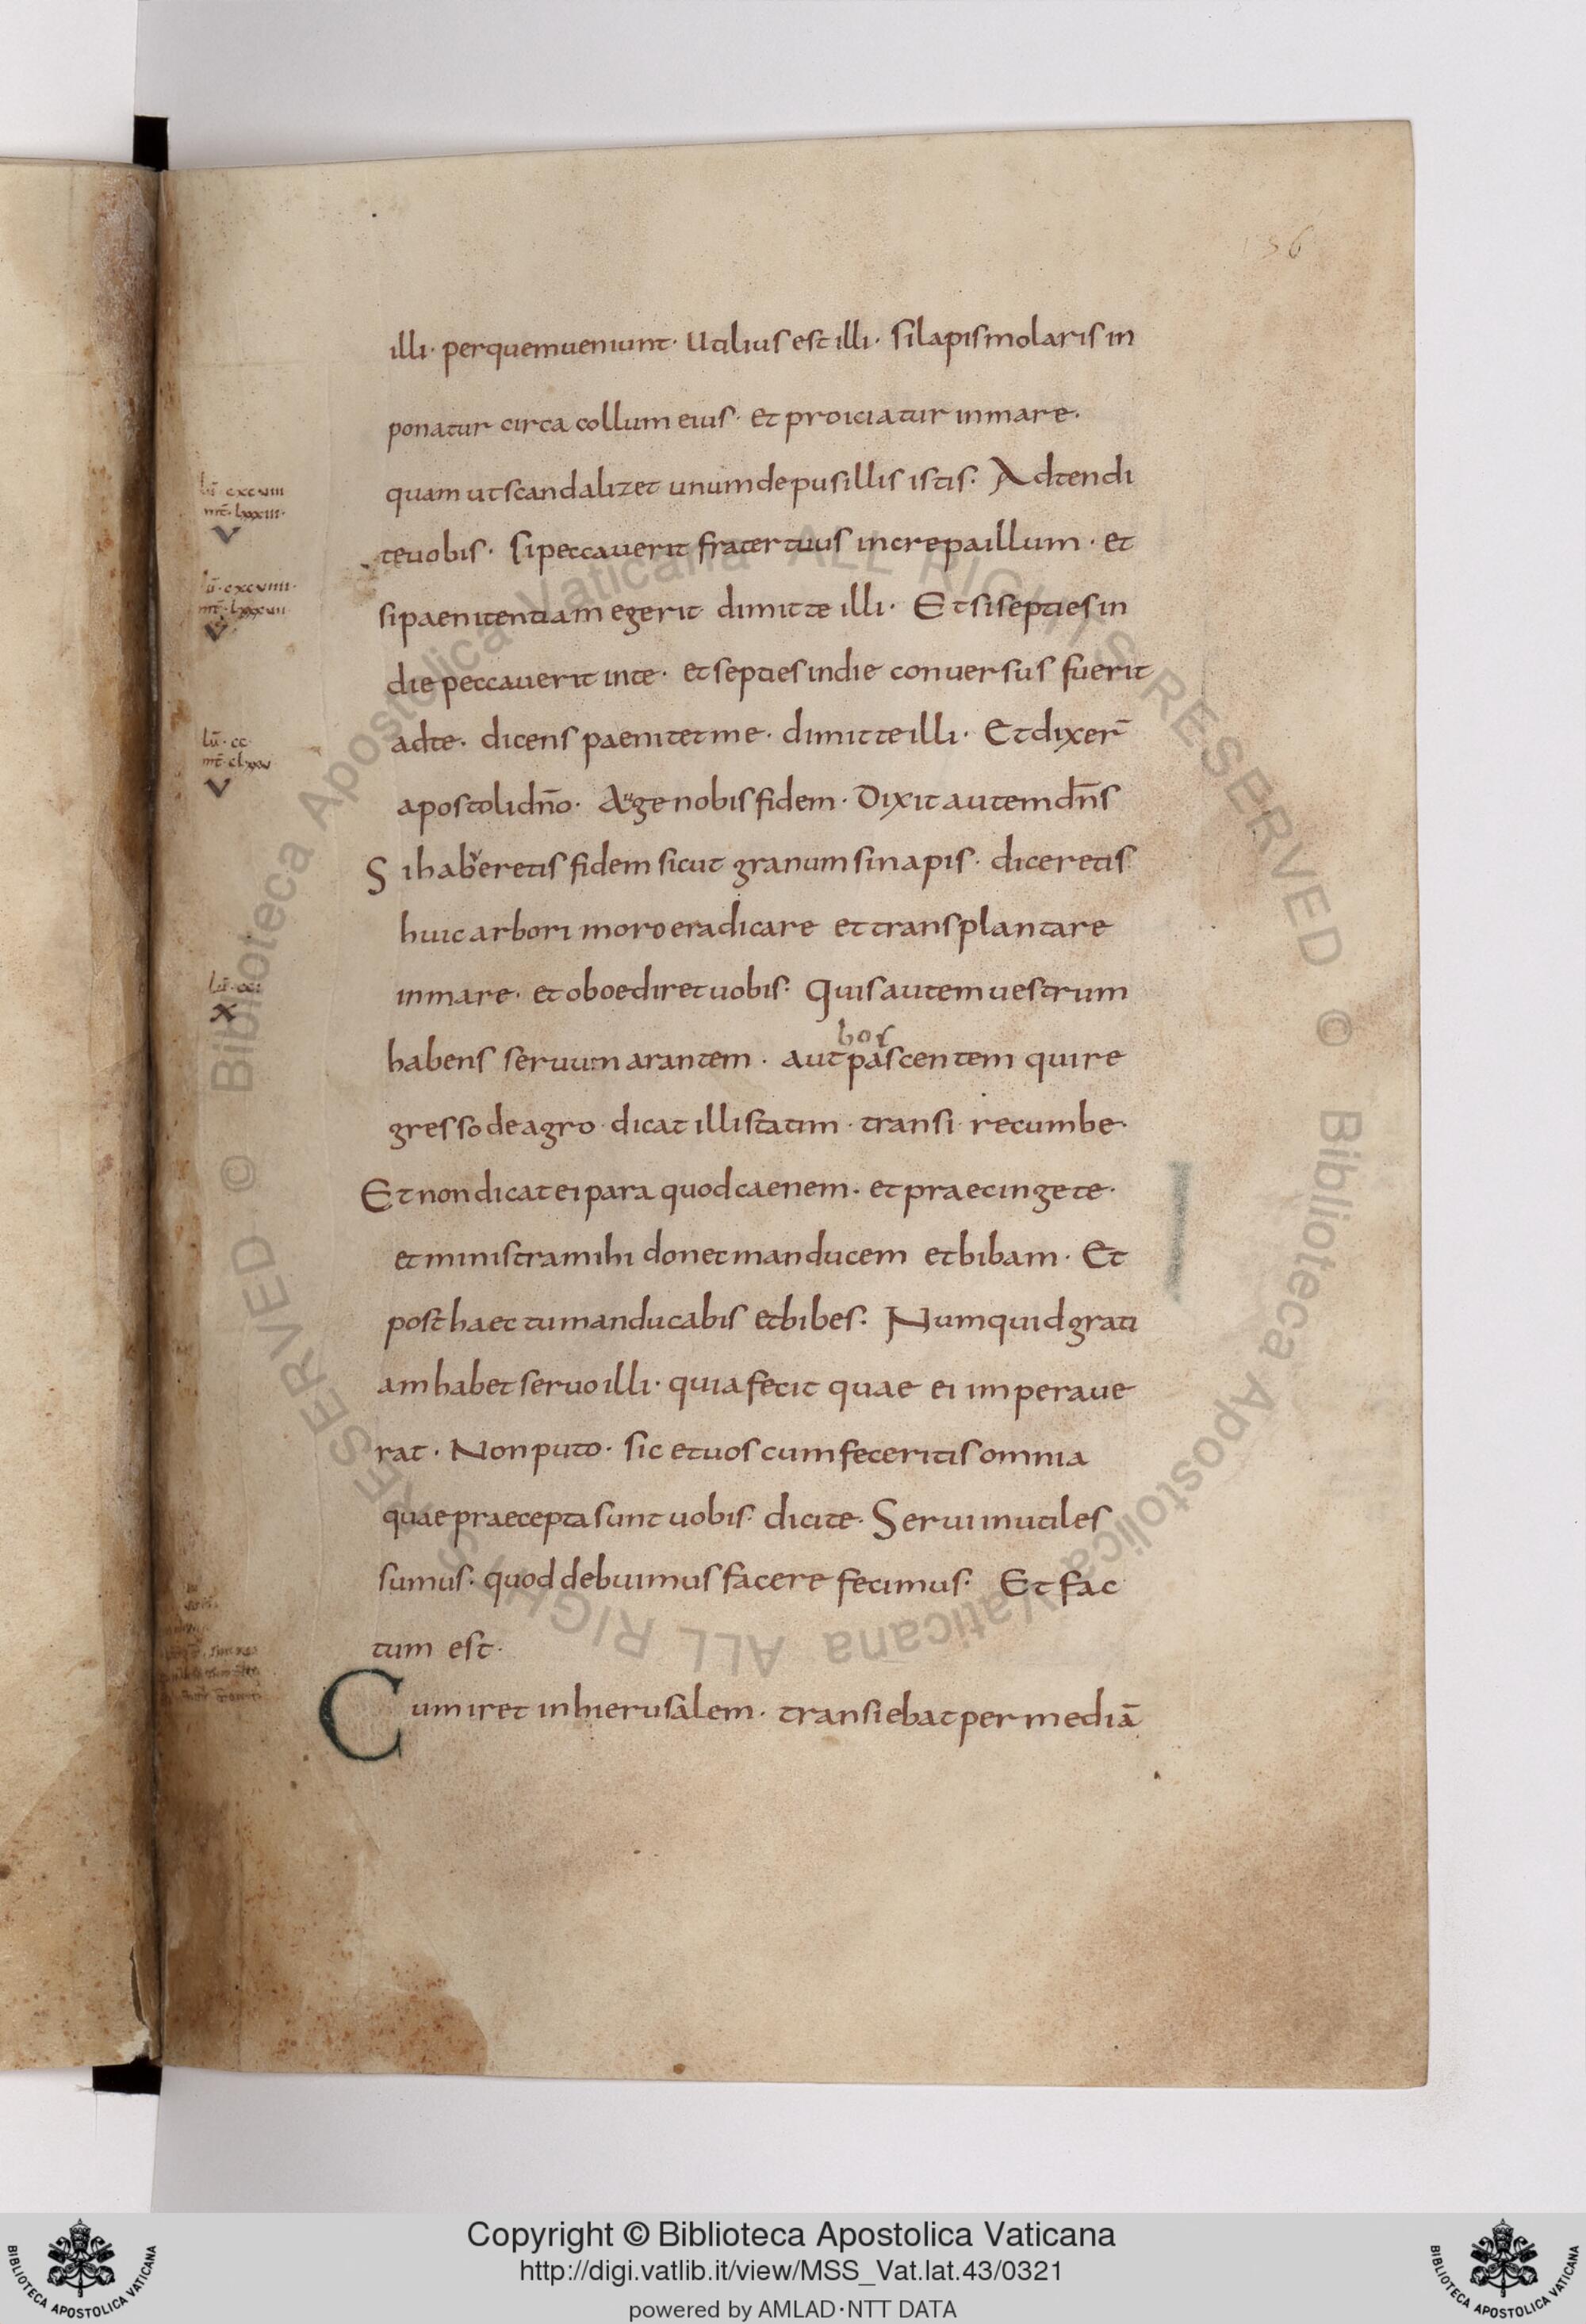 156
illi · perquemueniunt · Utilius est illi · silapismolaris in
ponatur circa collum eius · et proiciatur inmare ·
quam utscandalizet unumdepusillis istis : Adtendi
teuobis · sipeccauerit frater tuus increpaillum · et
sipaenitentiam egerit dimitte illi · Etsisepties in
die peccauerit inte · et septies indie conuersus fuerit
adte · dicens paenitet me · dimitte illi · Et dixer̄
apostoli dn̄o · Auge nobis fidem · Dixit autem dn̄s
Si haberetis fidem sicut granum sinapis · diceretis
huic arbori moro eradicare et transplantare
inmare · et oboediret uobis : Quis autem uestrum
bos
habens seruum arantem · aut pascentem qui re
gresso de agro dicat illi statim · transi recumbe ·
Et non dicat ei para quod caenem · et praecinge te ·
et ministra mihi donec manducem et bibam · Et
post haec tu manducabis et bibes : Numquid grati
am habet seruo illi · quia fecit quae ei imperaue
rat · Non puto · sic et uos cum feceritis omnia
quae praecepta sunt uobis dicite · Serui inutiles
sumus · quod debuimus facere fecimus : Et fac
tum est ·
Cum iret in hierusalem · transiebat per mediā
lū · cxcviii
mt̄ · lxxxiii ·
V
lū · cxcviiii ·
V
lū · cc
mt̄ · clxxv
V
lū · cci
X
© Biblioteca Apostolica Vaticana ALL RIGHTS RESERVED © Biblioteca Apostolica Vaticana ALL RIGHTS RESERVED
Copyright © Biblioteca Apostolica Vaticana
http://digi.vatlib.it/view/MSS_Vat.lat.43/0321
powered by AMLAD·NTT DATA
BIBLIOTECA APOSTOLICA VATICANA
BIBLIOTECA APOSTOLICA VATICANA